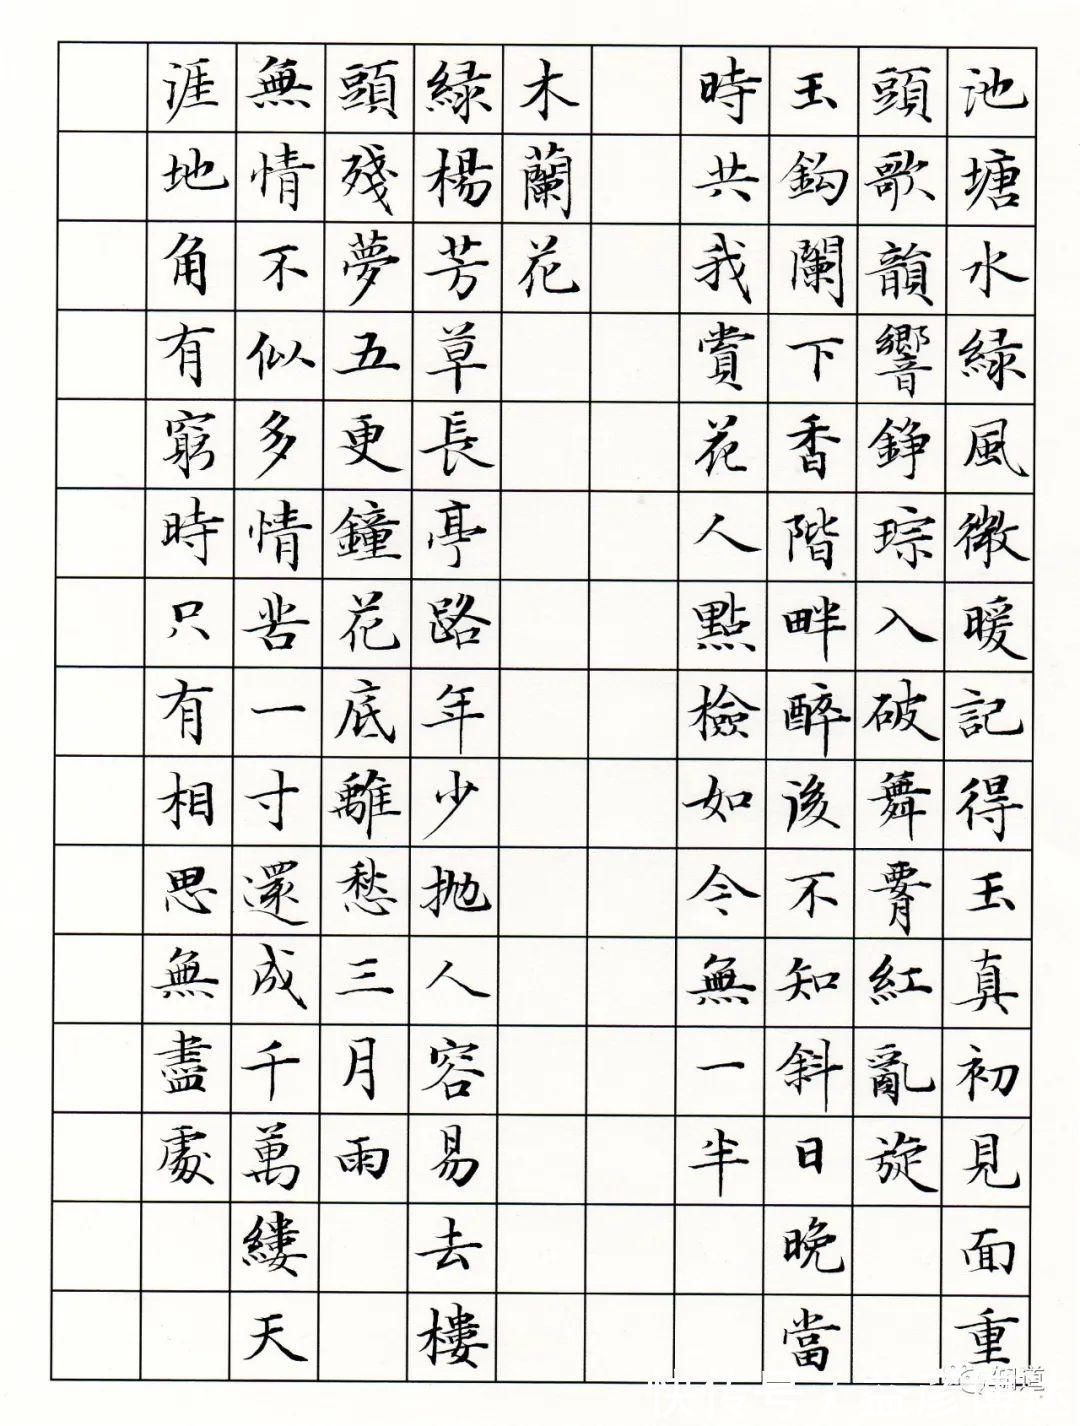 池塘水緑風微暖記得玉真初見面重
頭歌韻響錚琮入破舞腰紅亂旋
玉鈎闌下香階畔醉後不知斜日晚當
時共我賞花人點檢如今無一半
木蘭花
緑楊芳草長亭路年少抛人容易去樓
頭殘夢五更鐘花底離愁三月雨
無情不似多情苦一寸還成千萬縷天
涯地角有窮時只有相思無盡處